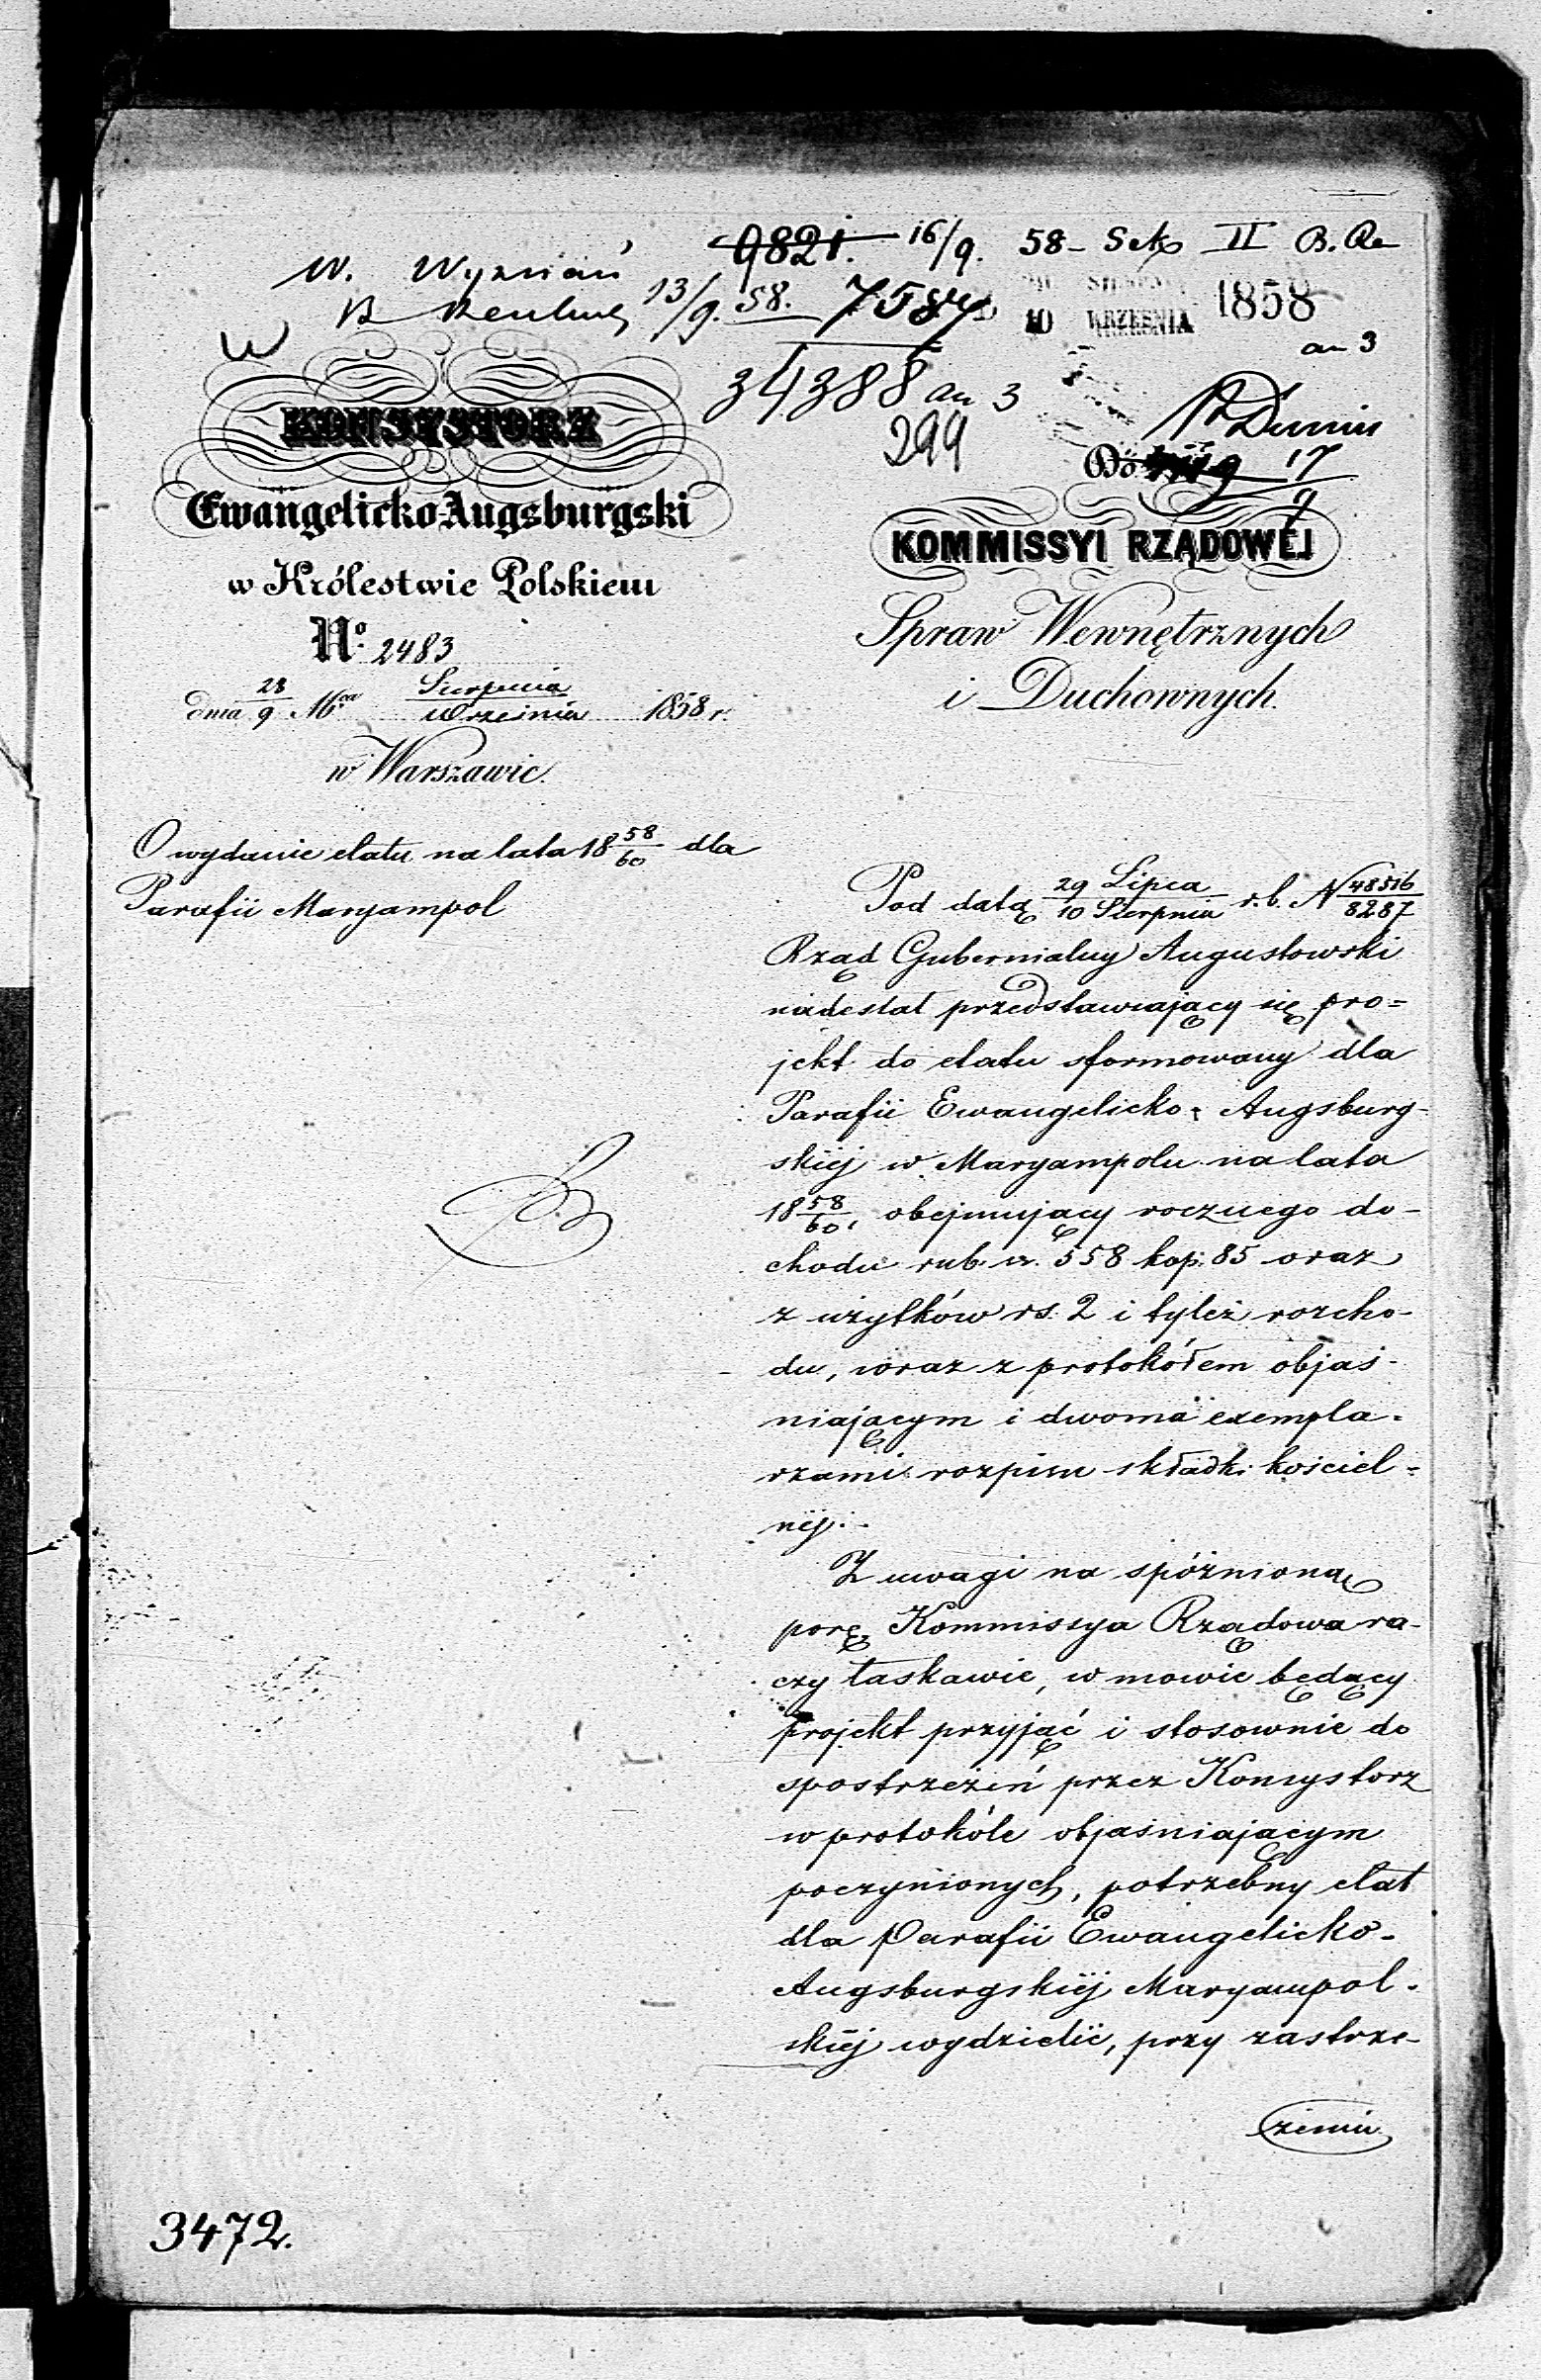 9821. 16/9. 58 - Sek II B. Re
W.
13/9. 58. 7587
10 WRZEŚNIA 1858
an 3
34388 an 3
299
Dumin
Do
17
9
W
KONSYSTORZ
Ewangelicko-Augsburgski
w Królestwie Polskiem
No. 2483
dnia 28/9 Mca Sierpnia/Września 1858 r.
w Warszawie.
O wydanie etatu na lata 18 58/60 dla
Parafii Maryampol
KOMMISSYI RZĄDOWÉJ
Spraw Wewnętrznych
i Duchownych.
Pod datą 29 Lipca/10 Sierpnia r.b. N 48516/8287
Rząd Gubernialny Augustowski
nadesłał przedstawiający się pro=
jekt do etatu sformowany dla
Parafii Ewangelicko-Augsburg-
skiéj w Maryampolu na lata
18 58/60, obejmujący rocznego do-
chodu rub. sr. 558 kop. 85 oraz
z użytków rs. 2 i tyleż rozcho-
du, wraz z protokółem objaś-
niającym i dwoma exempla-
rzami rozpisu składki kościel=
néj.
Z uwagi na spóźnioną
porę, Kommissya Rządowa ra-
czy łaskawie, w mowie będący
projekt przyjąć i stosownie do
spostrzeżeń przez Konsystorz
w protokóle objaśniającym
poczynionych, potrzebny etat
dla Parafii Ewangelicko-
Augsburgskiéj Maryampol-
skiéj wydzielić, przy zastrze-
żeniu
3472.